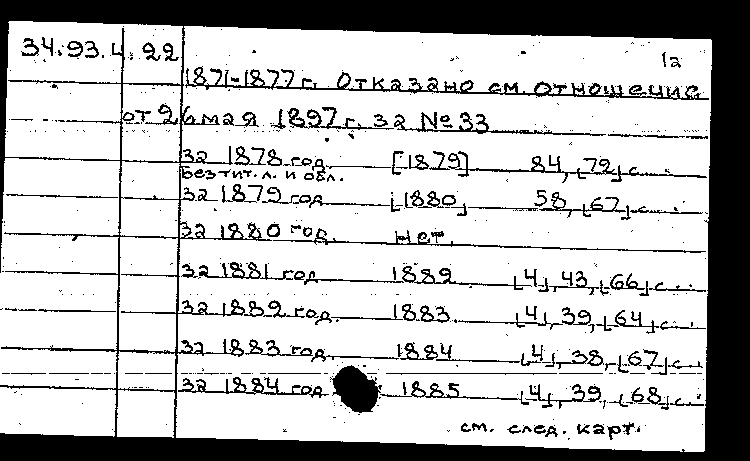 34.93.4.22
1а
1871-1877 г. Отказано см. отношение
от 26 мая 1897 г. за № 33
за 1878 год [1879] 84, [72] с.
Без тит. л. и обл.
за 1879 год [1880] 58, [67] с.
за 1880 год. нет.
за 1881 год 1882 [4], 43, [66] с.
за 1882 год. 1883. [4], 39, [64] с.
за 1883 год. 1884 [4], 38, [67] с.
за 1884 год 1885 [4], 39, [68] с.
см. след. карт.